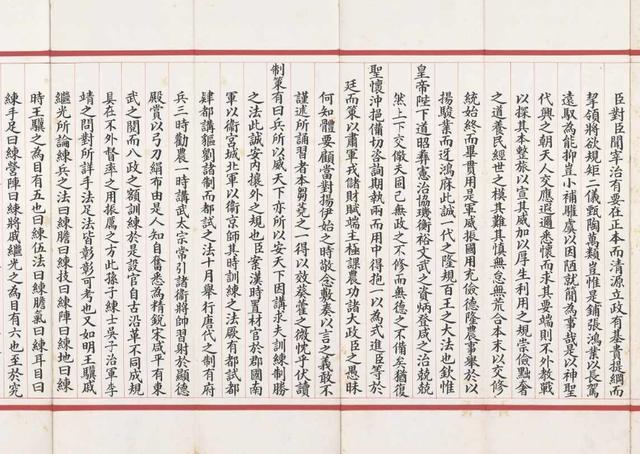 臣對臣聞宰治有要在正本而清源立政有基貴提綱而
挈領將欲規矩二儀甄陶萬類豈惟是鋪張鴻業以長駕
遠馭為能抑豈小補驩虞以因陋就簡為事哉是以神聖
代興之朝天人交應遐邇悉懷而求其要端則不外教戰
以探其本整旅以宣其威加以厚生利用之規崇儉黜奢
之道養民經世之模其難其慎無怠無荒合本末以交修
統始終而畢貫用是軍威振國用充儉德隆農事舉於以
揚駿業而迓鴻庥此誠一代之隆規百王之大法也欽惟
皇帝陛下道昭彝憲治協璣衡裕文武之資炳登咸之治兢兢
然上下交儆天固已無政之不修而無德之不備矣猶復
聖懷沖挹備切咨詢期執兩而用中得抱一以為式進臣等於
廷而策以肅軍戎儲財賦端主極課農功諸大政臣之愚昧
何知體要顧當對揚伊始之時敬念敷奏以言之義敢不
謹述所誦習者本芻蕘之一得以效葵藿之微忱乎伏讀
制策有曰兵所以威天下亦所以安天下因講求夫訓練制勝
之法此誠安內攘外之規也臣案漢時置材官於郡國南
軍以衛宮城北軍以衛京師其時訓練之法厥有都試都
肄都講貙劉諸制而都試之法十月舉行唐代之制有府
兵三時勸農一時講武太宗常引諸衛將帥習射於顯德
殿賞以弓刀絹布由是人人知自奮悉為精銳宋咸平有東
武之閱而八政之額訓練於是設官自古沿革不同成規
具在不外督率之用振厲之方此孫子練士吳子治軍李
靖之問對所詳手法足法皆彰彰可考也又如明王驥戚
繼光所論練兵之法曰練膽曰練技曰練陣曰練地曰練
時王驥之為目有五也曰練伍法曰練膽氣曰練耳目曰
練手足曰練營陣曰練將戚繼光之為目有六也至於究